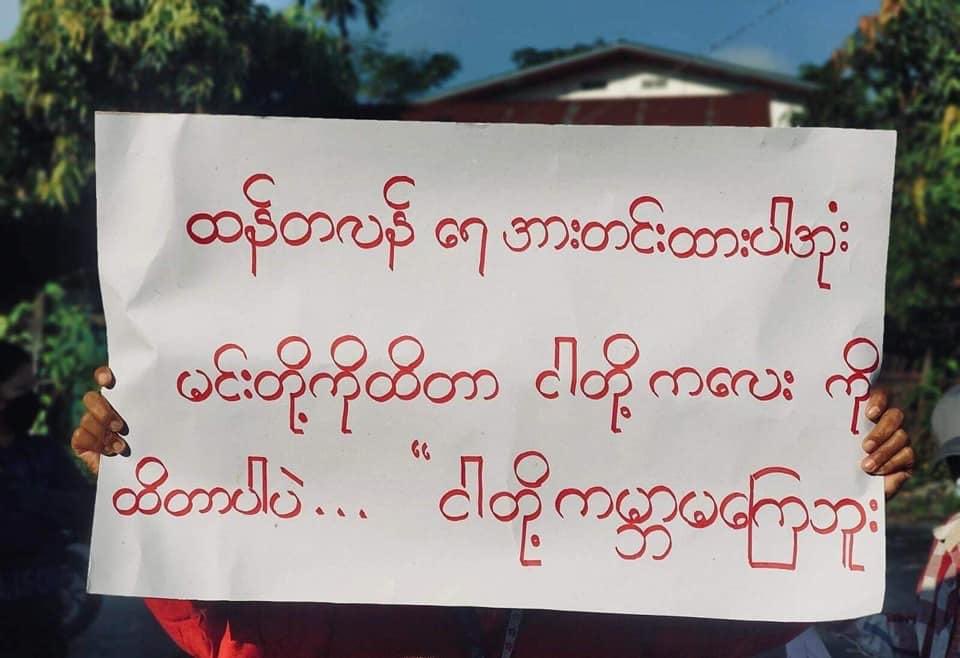 ထန်တလန် ရေ အားတင်းထားပါအုံး
မင်းတို့ကိုထိတာ ငါတို့ ကလေး ကို
ထိတာပါပဲ... “ ငါတို့ကမ္ဘာမကြေဘူး